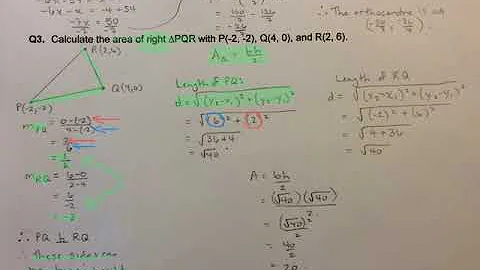 -6x-x = -4+54
-7x = 50
∴ The orthocentre is at
Q3. Calculate the area of right ΔPQR with P(-2, -2), Q(4, 0), and R(2, 6).
A_Δ = bh/2
R(2,6)
Q(4,0)
P(-2,-2)
m_PQ = 0-(-2)/4-(-2)
= 2/6
= 1/3
m_RQ = 6-0/2-4
= 6/-2
= -3
∴ PQ ⊥ RQ
∴ these sides are
Length of PQ:
d = √(x₂-x₁)² + (y₂-y₁)²
= √(6)² + (2)²
= √36+4
= √40
Length of RQ
d = √(x₂-x₁)² + (y₂-y₁)²
= √(-2)² + (6)²
= √4+36
= √40
A = bh/2
= (√40)(√40)/2
= (√40)²/2
= 40/2
= 20